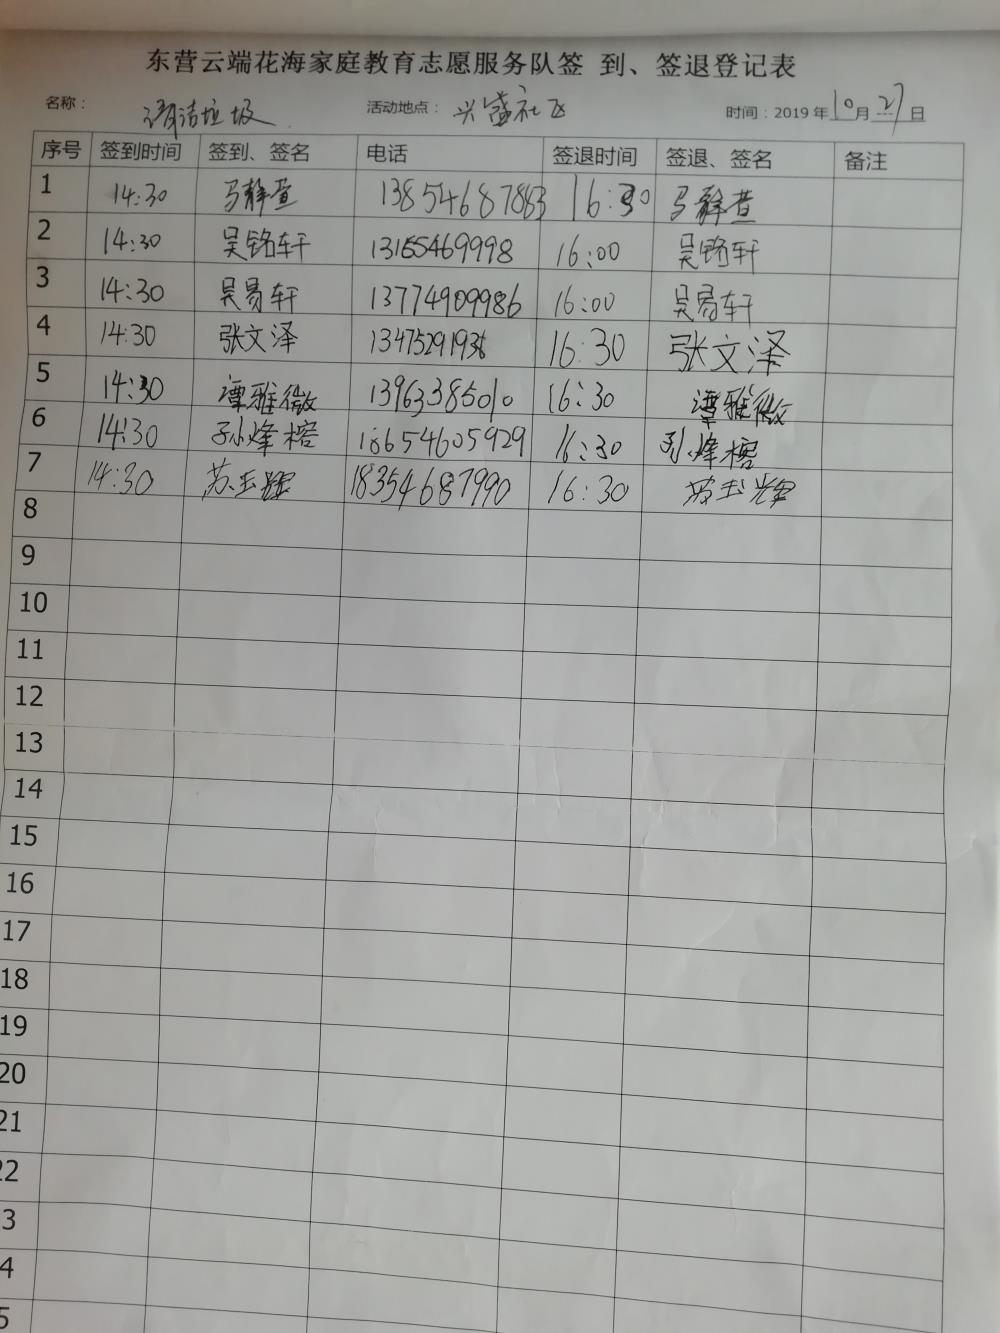 东营云端花海家庭教育志愿服务队签 到、签退登记表
名称： 清洁垃圾 活动地点： 兴盛社区 时间：2019 年 10 月 27 日
序号 签到时间 签到、签名 电话 签退时间 签退、签名 备注
1 14:30 马静萱 13854687883 16:30 马静萱
2 14:30 吴铭轩 13165469998 16:00 吴铭轩
3 14:30 吴易轩 13774909986 16:00 吴易轩
4 14:30 张文泽 13475291936 16:30 张文泽
5 14:30 谭雅微 13963385010 16:30 谭雅微
6 14:30 孙烽榕 18654605929 16:30 孙烽榕
7 14:30 苏玉辉 18354687990 16:30 苏玉辉
8
9
10
11
12
13
14
15
16
17
18
19
20
21
22
3
4
5